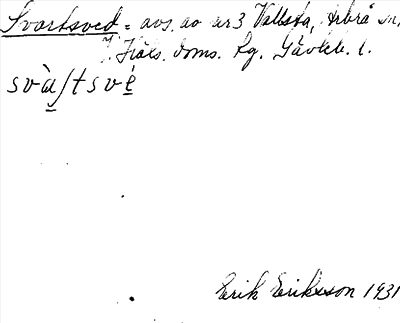 Svartsved = avs. av nr 3 Vallsta, Arbrå sn,
N. Häls. doms. Rg. Gävleb. l.
svàʃtsvè
Erik Eriksson 1931